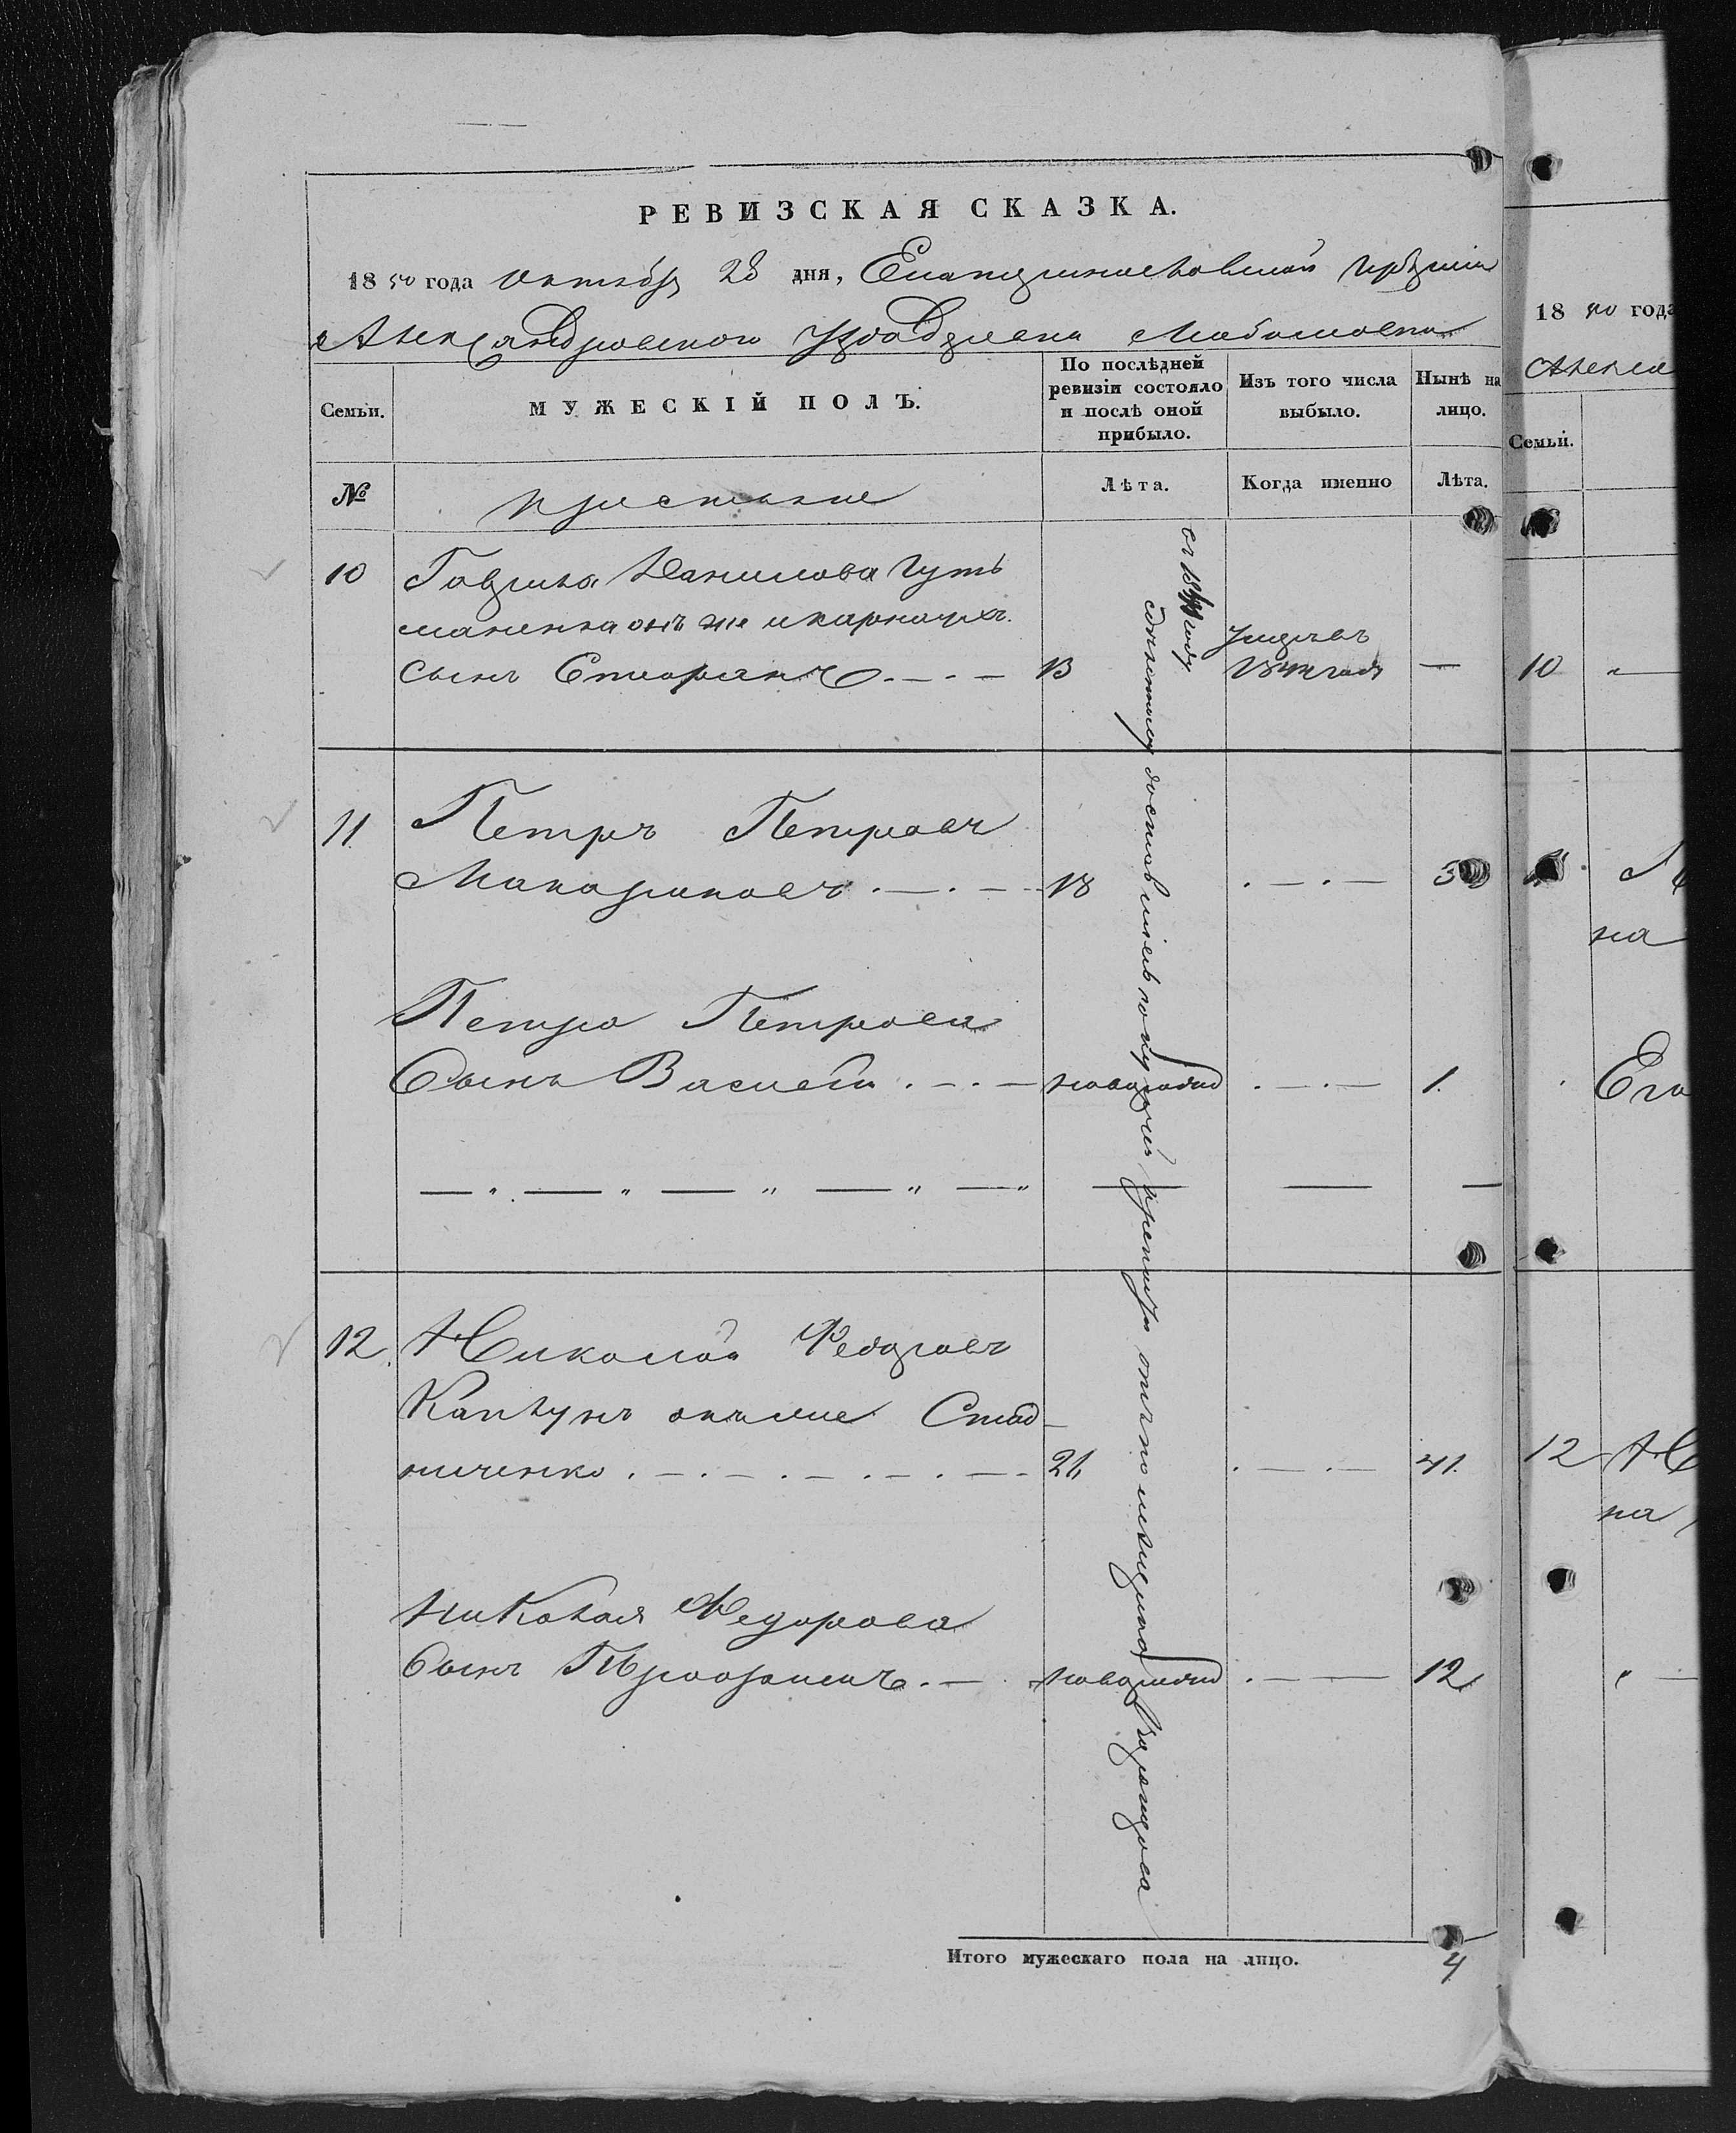 РЕВИЗСКАЯ СКАЗКА.
1850 года октября 28 дня, Екатеринославской губернии
Александровского уезда деревни
Семьи.
МУЖЕСКІЙ ПОЛЪ.
По послѣдней ревизіи состояло и послѣ оной прибыло.
Изъ того числа выбыло.
Нынѣ на лицо.
№
крестьяне
Лѣта.
Когда именно
Лѣта.
10 Гаврила Данилова Гуть
маненка онъ же и карнаухъ.
сынъ Стефанъ 13 умеръ 1844 года —
11 Петръ Петровъ
Макариновъ 18 . — . — 3
Петра Петрова
Сынъ Василий новорожд . — . — 1.
12. Николай Федоровъ
Каплунъ онъ же Стад-
ниченко 21 . — . — 41.
Николая Федорова
Сынъ Трофимъ новорожд . — 12
съ году
доставшіесь по купчей крепости отъ помещика
Итого мужескаго пола на лицо. 4
18 50 года
Алекса
Семьи.
10
на
Его
12 Н
на